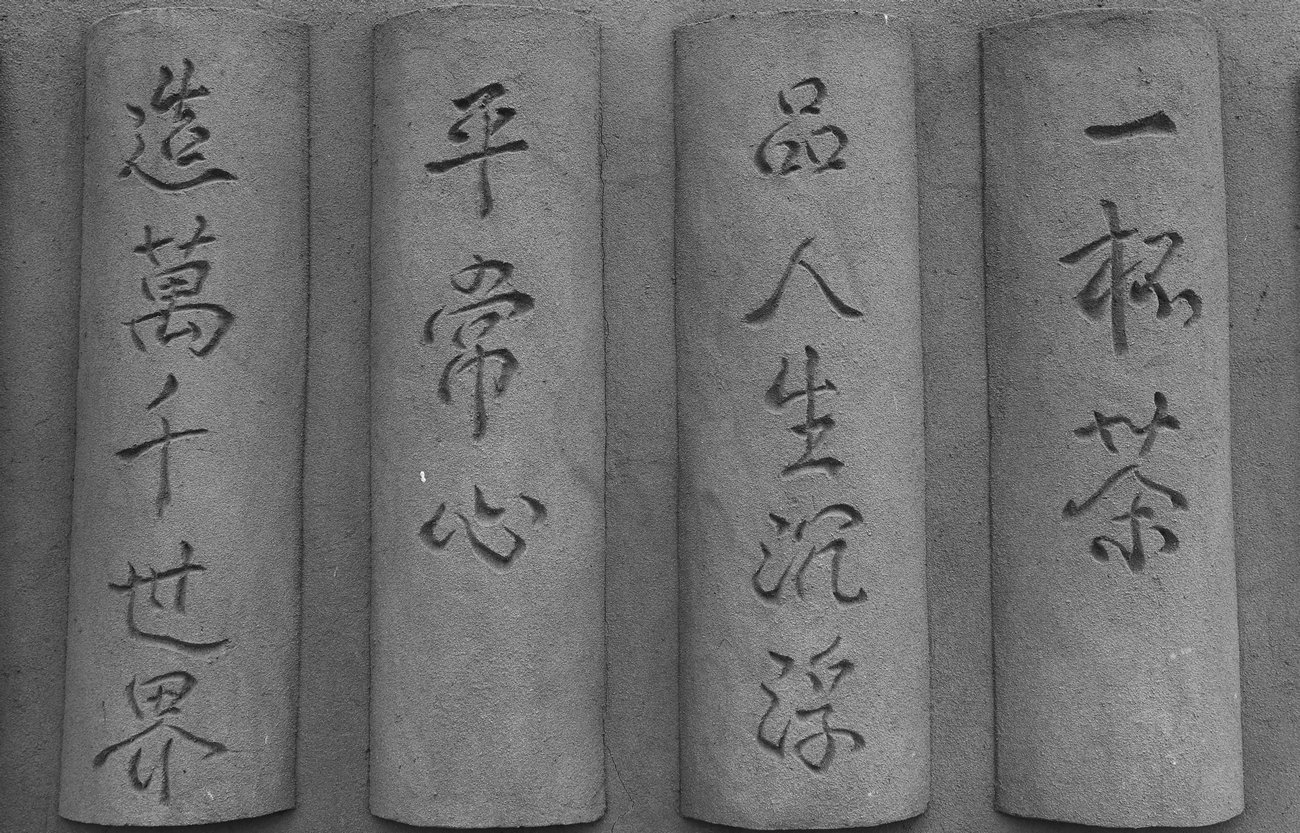 一杯茶
品人生沉浮
平常心
造萬千世界